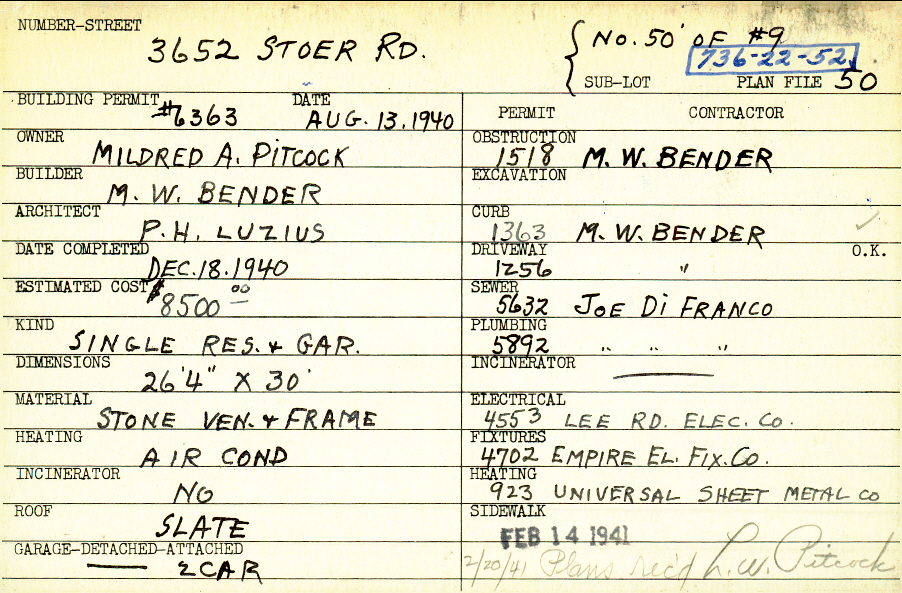 NUMBER-STREET
3652 STOER RD.
No. 50' OF #9
736-22-52
SUB-LOT PLAN FILE 50
BUILDING PERMIT #6363 DATE AUG. 13. 1940
PERMIT CONTRACTOR
OWNER MILDRED A. PITCOCK
OBSTRUCTION 1518 M. W. BENDER
BUILDER M. W. BENDER
EXCAVATION
ARCHITECT P. H. LUZIUS
CURB 1363 M. W. BENDER
DATE COMPLETED DEC. 18. 1940
DRIVEWAY 1256 " O.K.
ESTIMATED COST $8500 00
SEWER 5632 JOE Di FRANCO
KIND SINGLE RES. & GAR.
PLUMBING 5892 " " "
DIMENSIONS 26'4" X 30'
INCINERATOR
MATERIAL STONE VEN. & FRAME
ELECTRICAL 4553 LEE RD. ELEC. CO.
HEATING AIR COND
FIXTURES 4702 EMPIRE EL. FIX. CO.
INCINERATOR NO
HEATING 923 UNIVERSAL SHEET METAL CO
ROOF SLATE
SIDEWALK
FEB 14 1941
GARAGE-DETACHED-ATTACHED
2 CAR
2/20/41 Plans rec'd L. W. Pitcock